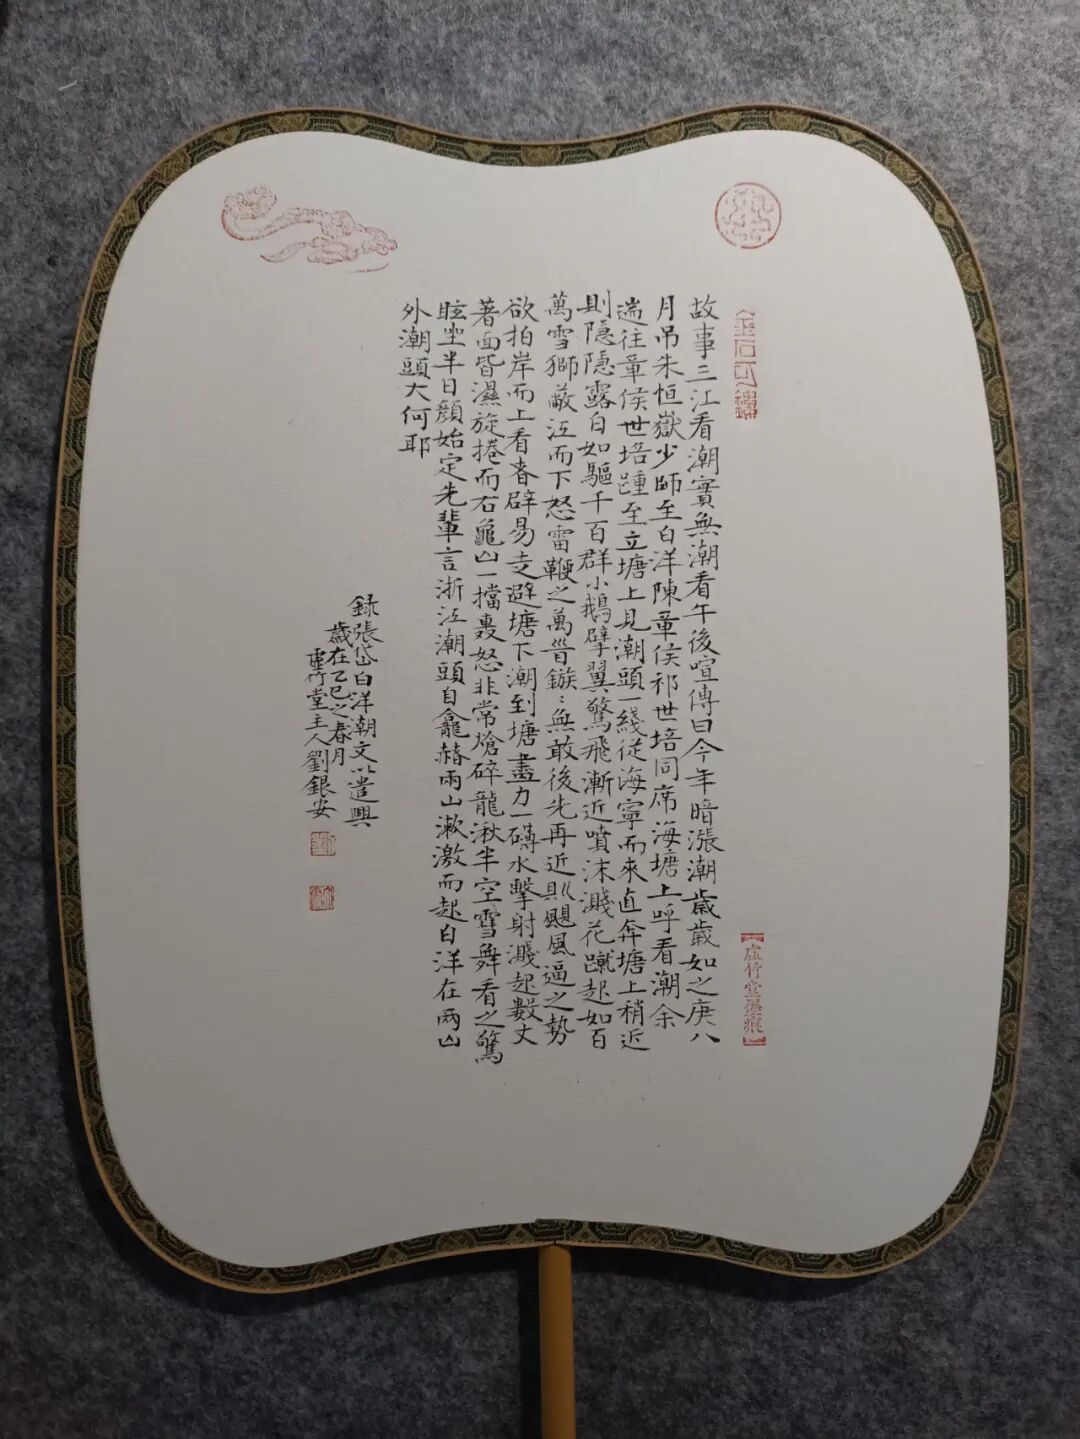 金石可鏤
虛竹堂墨痕
故事三江看潮實無潮看午後喧傳曰今年暗漲潮歲歲如之庚八
月吊朱恒嶽少師至白洋陳章侯祁世培同席海塘上呼看潮余
遄往章侯世培踵至立塘上見潮頭一綫從海寧而來直奔塘上稍近
則隱隱露白如驅千百群小鵝擘翼驚飛漸近噴沫濺花蹴起如百
萬雪獅蔽江而下怒雷鞭之萬首鏃〻無敢後先再近則颶風逼之勢
欲拍岸而上看者辟易走避塘下潮到塘盡力一礴水擊射濺起數丈
著面皆濕旋捲而右龜山一擋轟怒非常熗碎龍湫半空雪舞看之驚
眩坐半日顏始定先輩言浙江潮頭自龕赭兩山漱激而起白洋在兩山
外潮頭大何耶
録張岱白洋潮文以遣興
歲在乙巳之春月
虛竹堂主人劉銀安